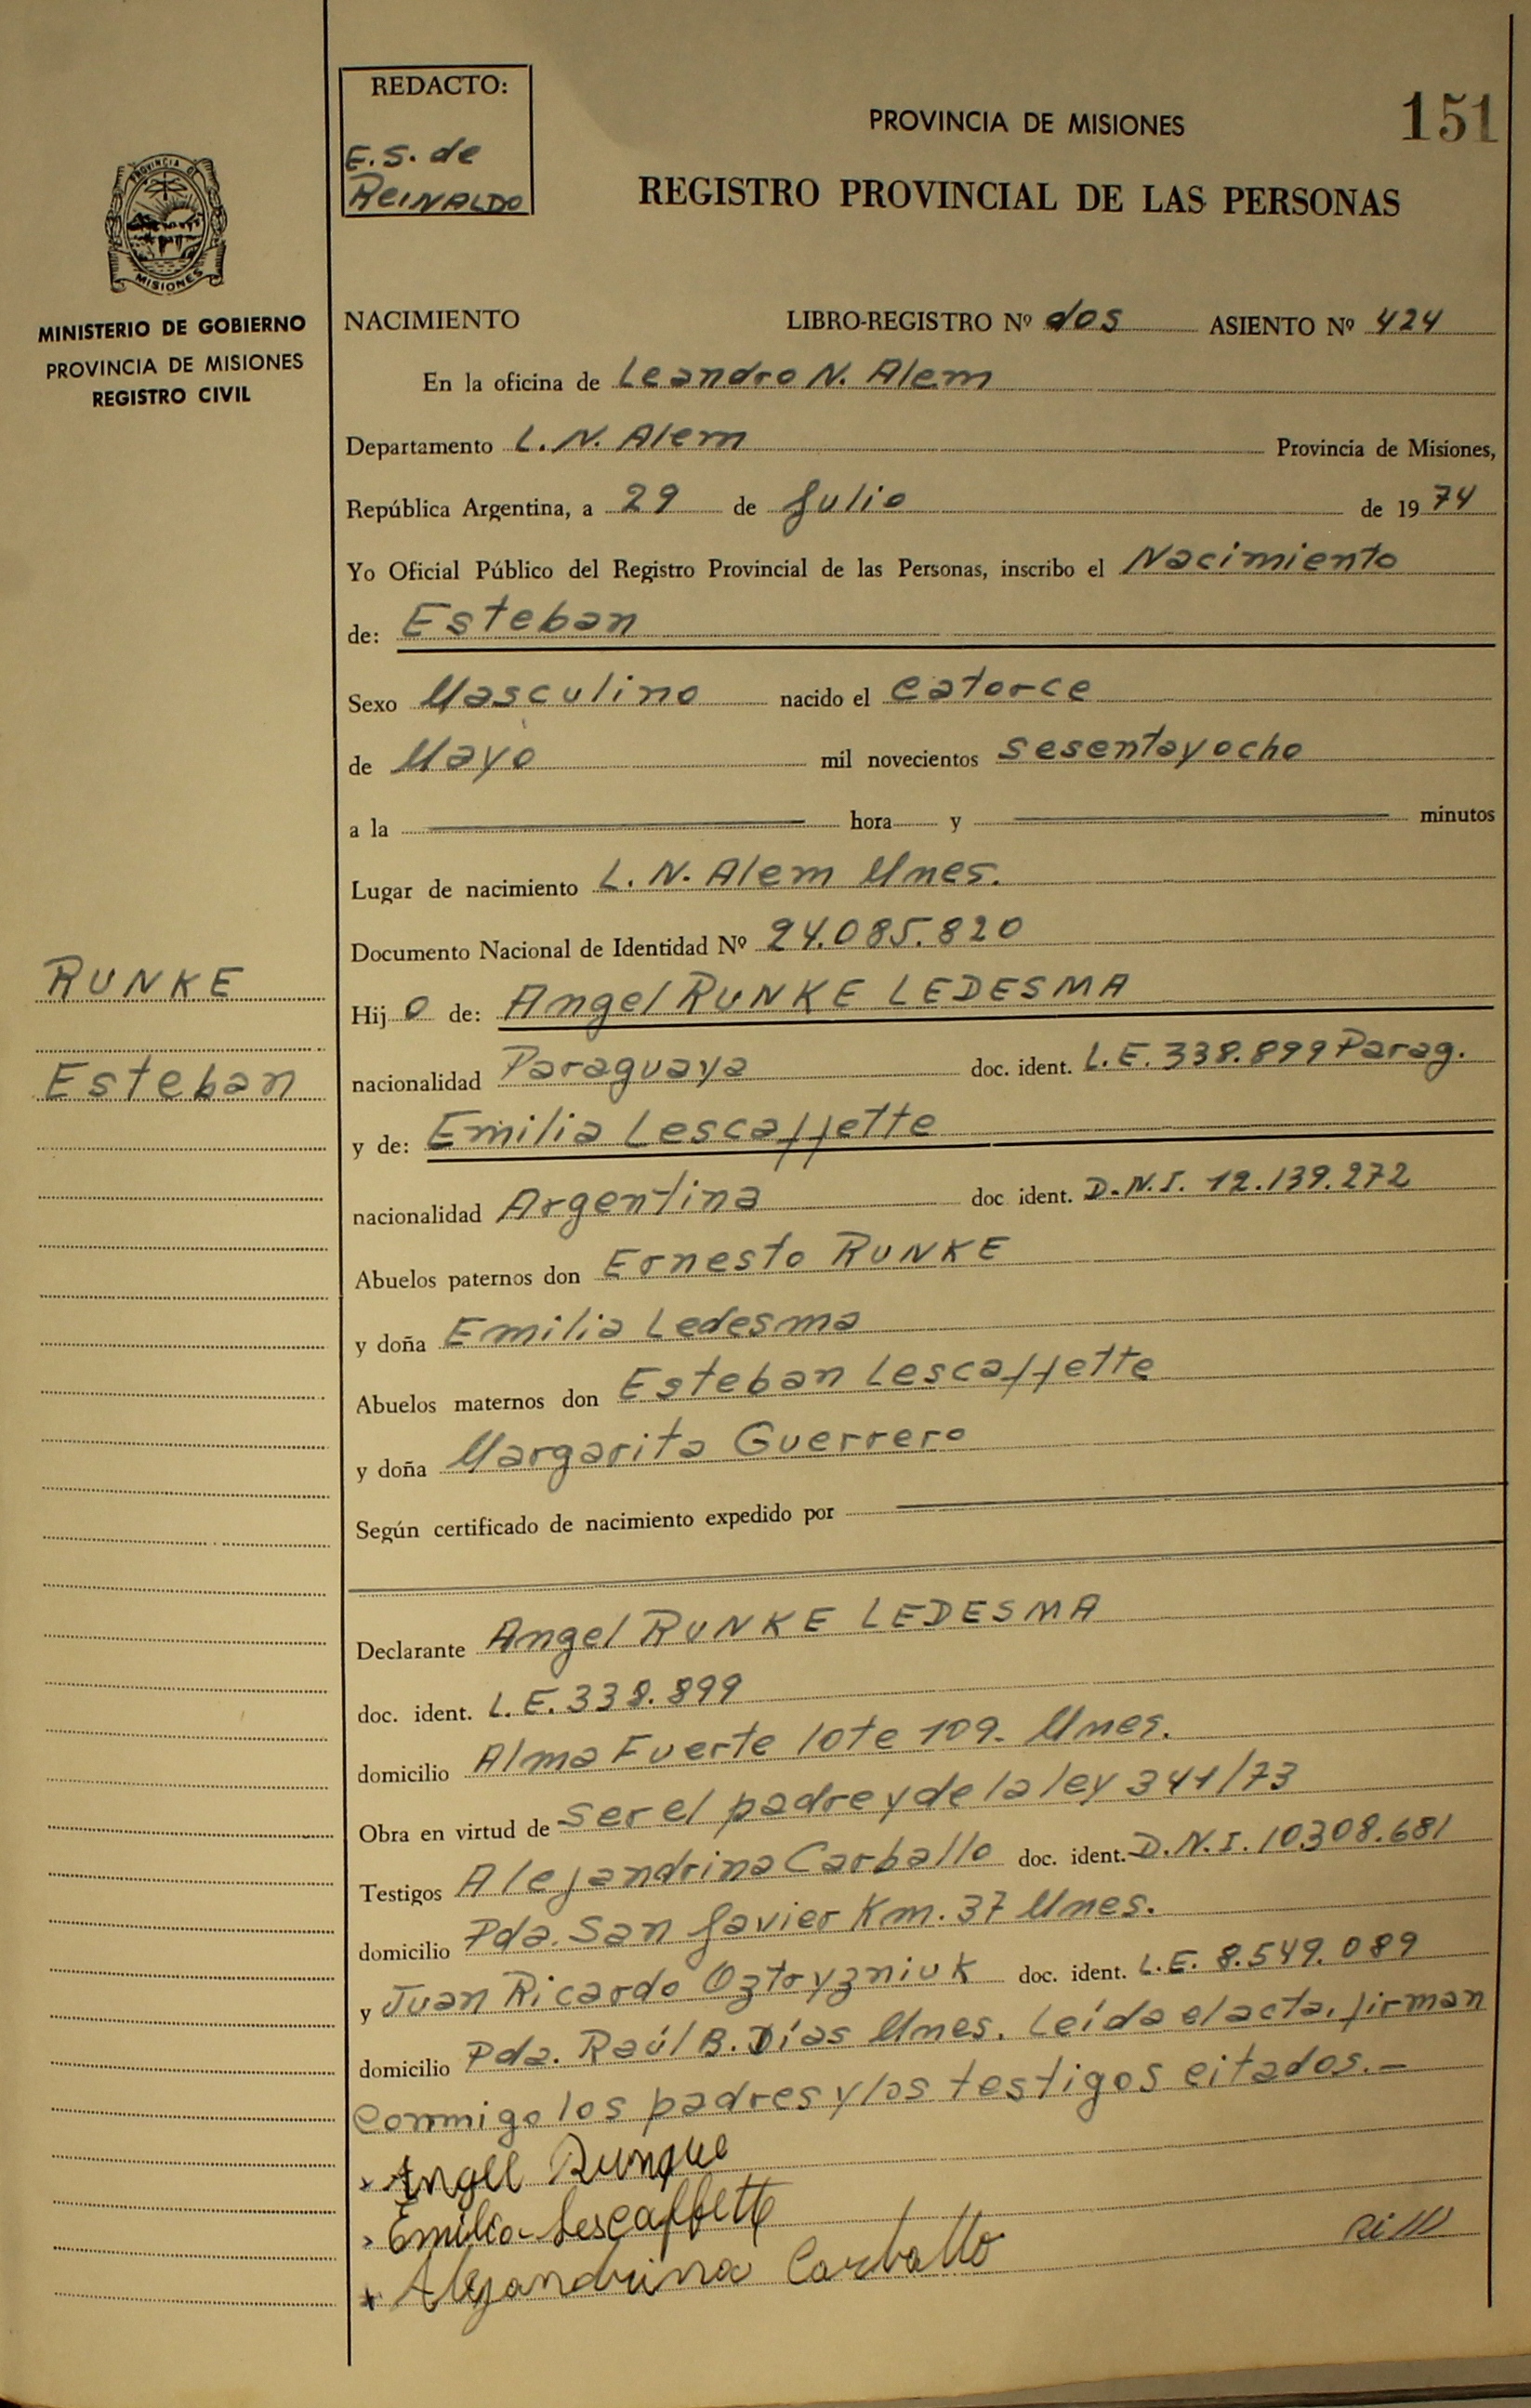 REDACTO:
E.S. de
REINALDO
PROVINCIA DE MISIONES
151
REGISTRO PROVINCIAL DE LAS PERSONAS
PROVINCIA DE
MISIONES
MINISTERIO DE GOBIERNO
PROVINCIA DE MISIONES
REGISTRO CIVIL
NACIMIENTO LIBRO-REGISTRO Nº dos ASIENTO Nº 424
En la oficina de Leandro N. Alem
Departamento L. N. Alem Provincia de Misiones,
República Argentina, a 29 de Julio de 1974
Yo Oficial Público del Registro Provincial de las Personas, inscribo el Nacimiento
de: Esteban
Sexo Masculino nacido el catorce
de Mayo mil novecientos sesentayocho
a la hora y minutos
Lugar de nacimiento L. N. Alem Mnes.
Documento Nacional de Identidad Nº 24.085.820
RUNKE
Esteban
Hijo de: Angel RUNKE LEDESMA
nacionalidad Paraguaya doc. ident. L.E. 338.899 Parag.
y de: Emilia Lescaffette
nacionalidad Argentina doc ident. D.N.I. 12.139.272
Abuelos paternos don Ernesto RUNKE
y doña Emilia Ledesma
Abuelos maternos don Esteban Lescaffette
y doña Margarita Guerrero
Según certificado de nacimiento expedido por
Declarante Angel RUNKE LEDESMA
doc. ident. L.E. 338.899
domicilio Alma Fuerte lote 109- Mnes.
Obra en virtud de ser el padre y de la ley 341/73
Testigos Alejandrina Carballo doc. ident. D.N.I. 10.308.681
domicilio Pda. San Javier Km. 37 Mnes.
y Juan Ricardo Oztoyzniuk doc. ident. L.E. 8.549.089
domicilio Pda. Raúl B. Días Mnes. Leída el acta, firman
conmigo los padres y los testigos citados.-
x Angel Runque
x Emilia Lescaffette
x Alejandrina Carballo